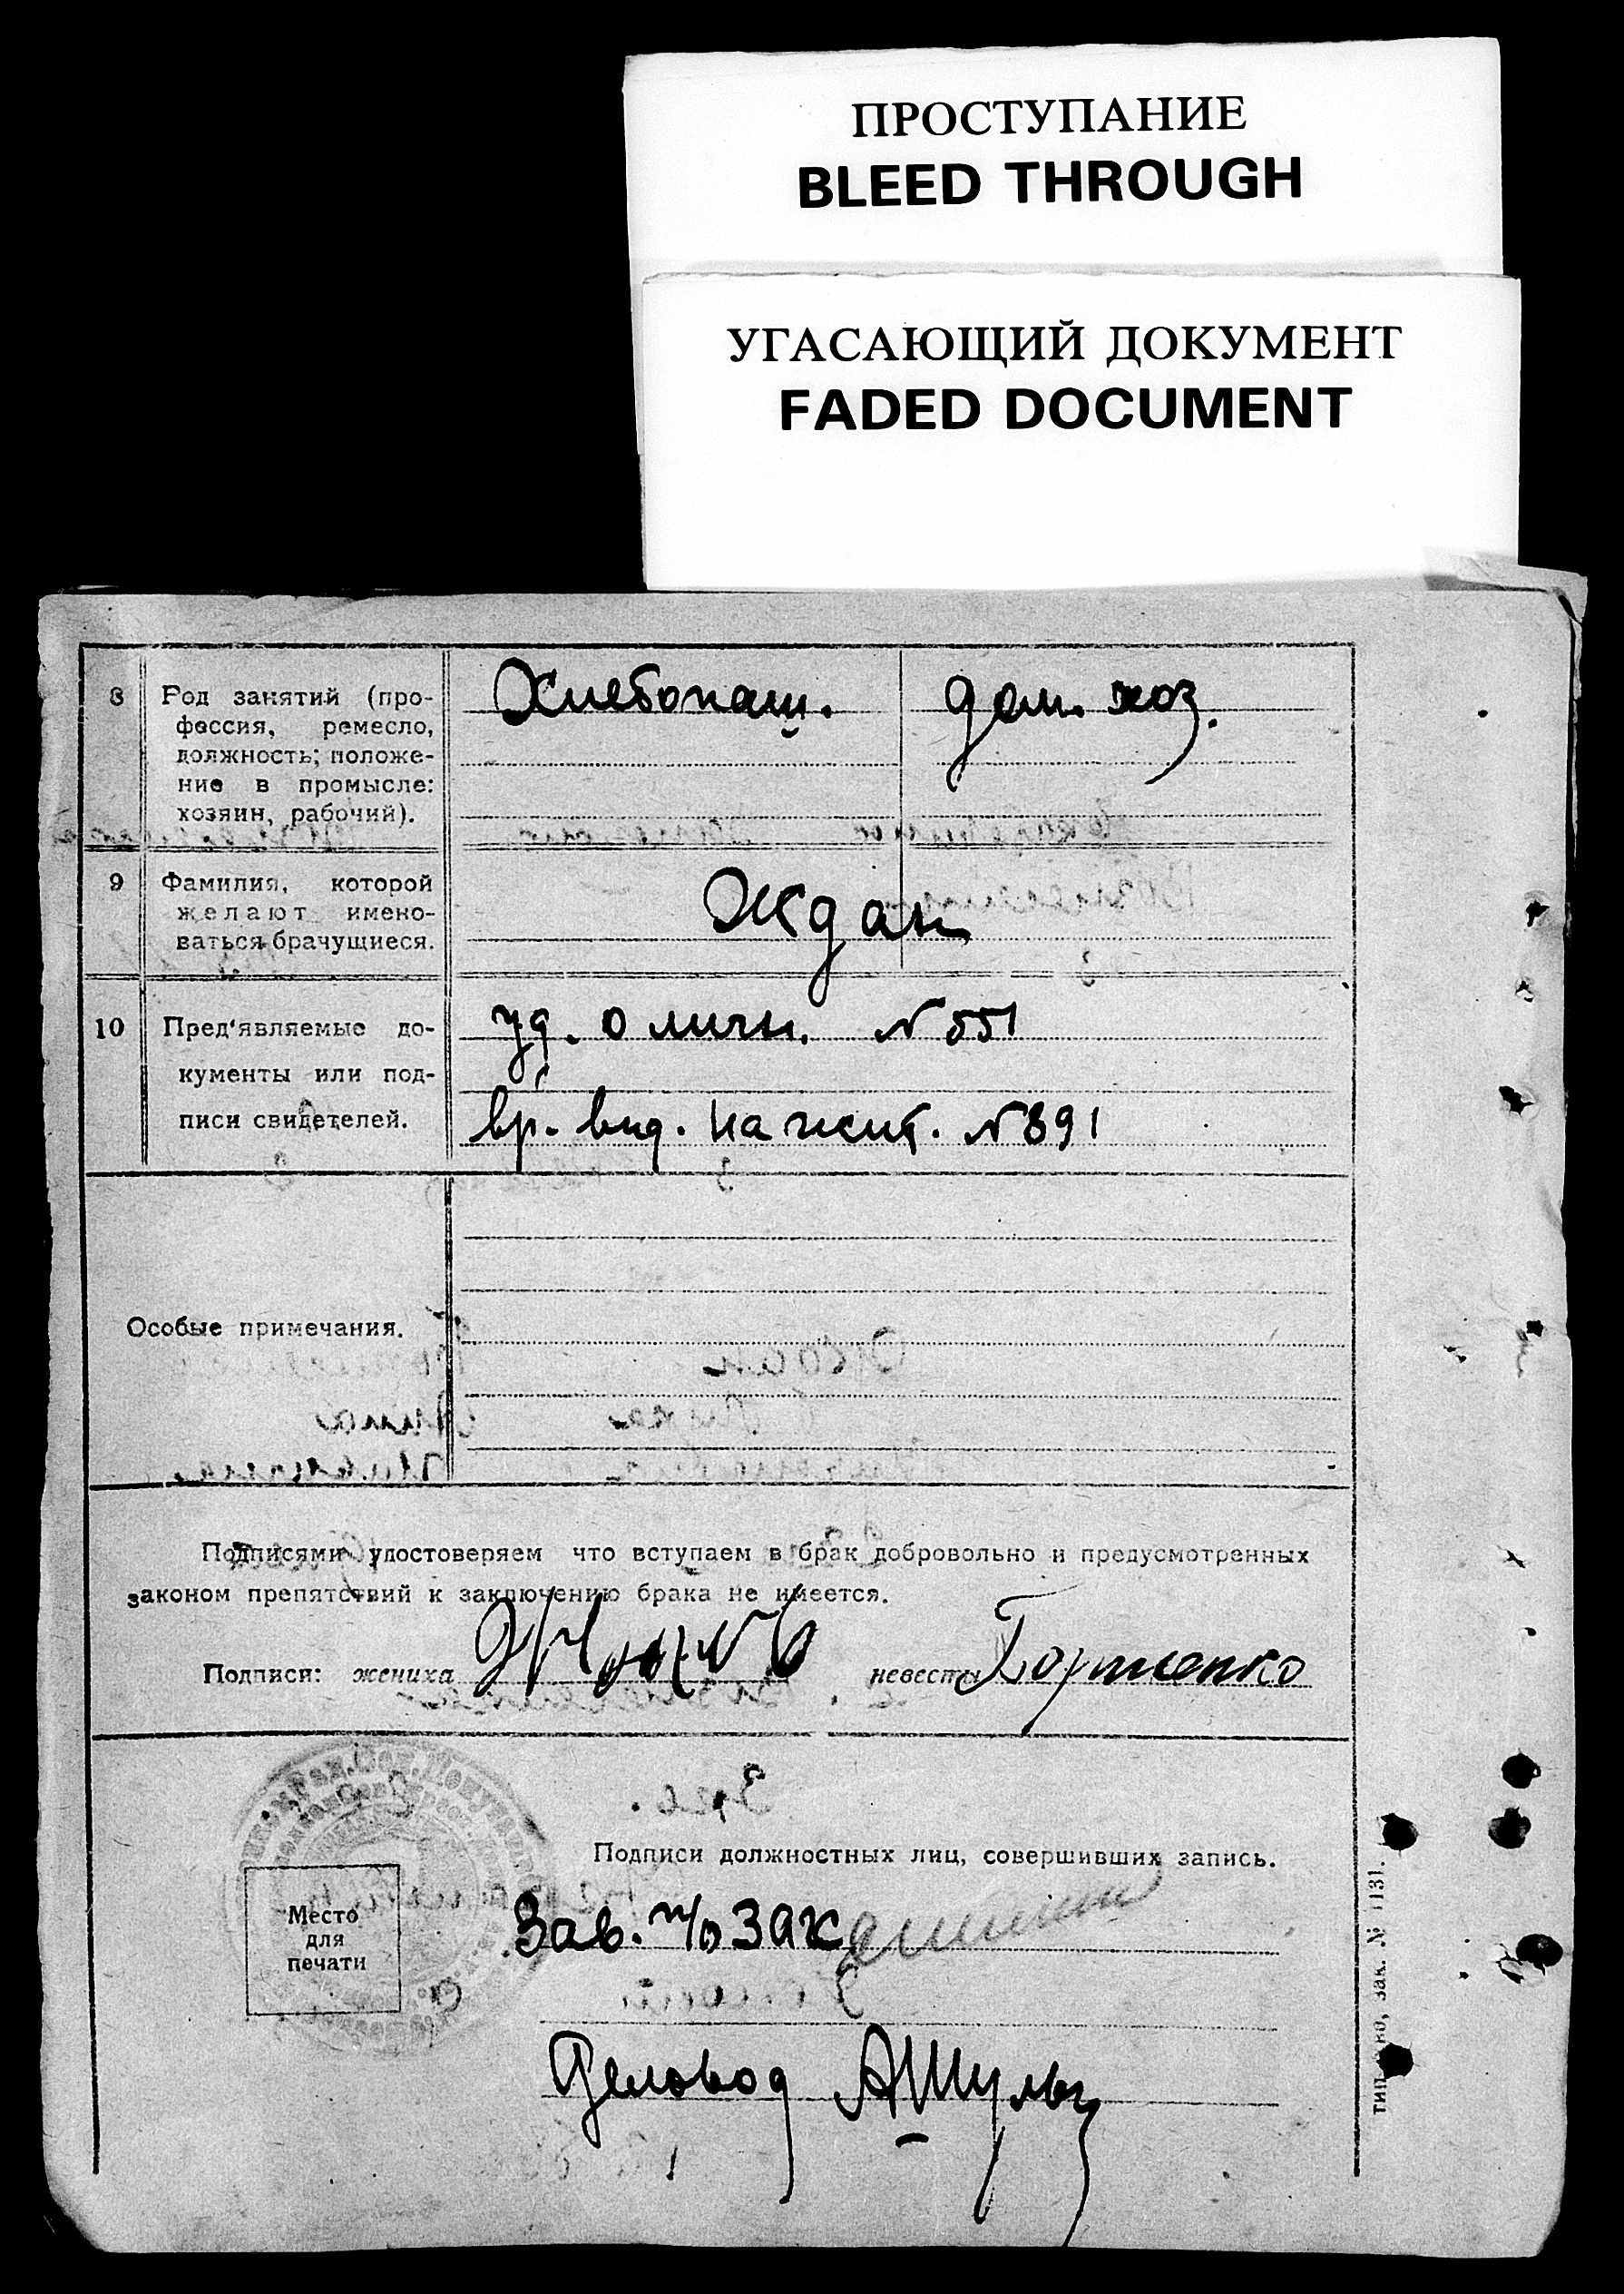 ПРОСТУПАНИЕ
BLEED THROUGH
УГАСАЮЩИЙ ДОКУМЕНТ
FADED DOCUMENT
8 Род занятий (про-
фессия, ремесло,
должность; положе-
ние в промысле:
хозяин, рабочий).
Хлебопаш. дом. хоз.
9 Фамилия, которой
желают имено-
ваться брачущиеся.
Ждан
10 Пред'являемые до-
кументы или под-
писи свидетелей.
уд. о личн. № 551
вр. вид. на жит. № 891
Особые примечания.
Подписями удостоверяем что вступаем в брак добровольно и предусмотренных
законом препятствий к заключению брака не имеется.
Подписи: жениха невесты
Подписи должностных лиц, совершивших запись.
Место
для
печати
Зав. п/о ЗАК
Деловод АШульц
зак. № 1131.